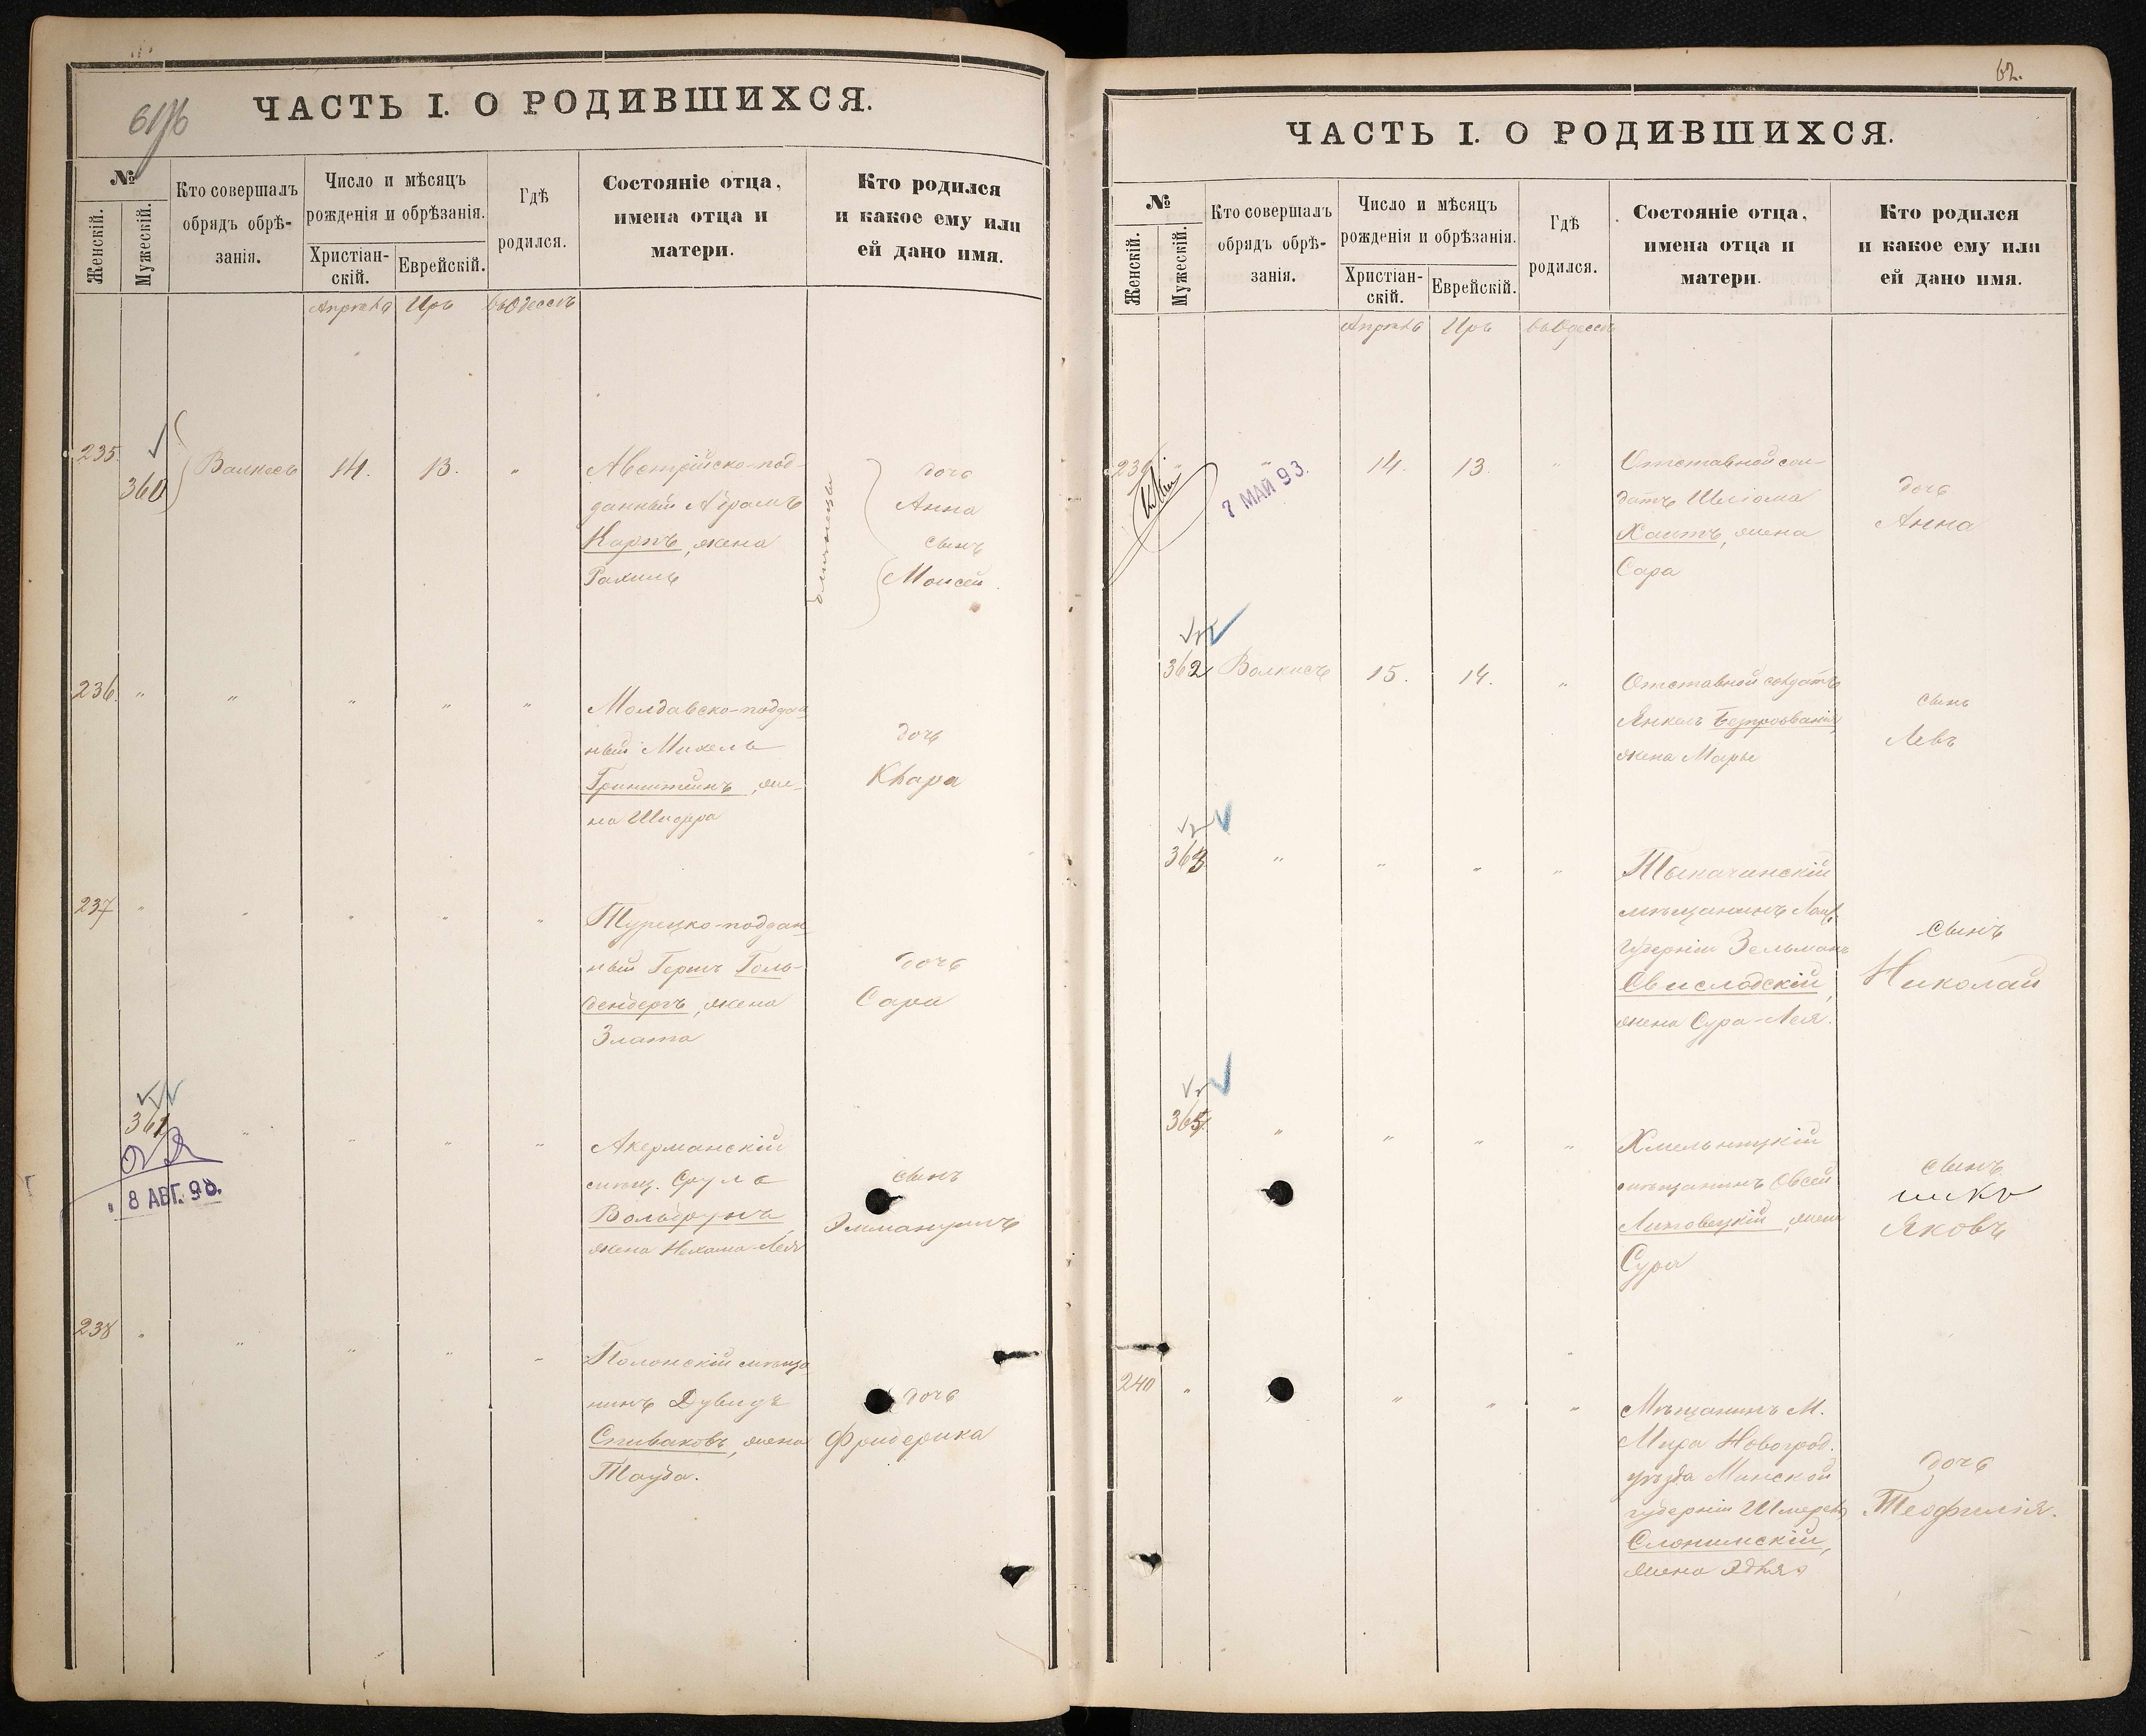 ЧАСТЬ I. О РОДИВШИХСЯ.
№
Женскій.
Мужескій.
Кто совершалъ
обрядъ обрѣ-
занія.
Число и мѣсяцъ
рожденія и обрѣзанія.
Христіан-
скій.
Еврейскій.
Гдѣ
родился.
Состояніе отца,
имена отца и
матери.
Кто родился
и какое ему или
ей дано имя.
Апрѣля Иръ въ Одессѣ
235. 360 14. 13. "
Австрійско-под-
данный Абрамъ
Карпъ, жена
Рахиль
близнецы
дочь
Анна
сынъ
Моисей.
236. " " " " "
Молдавско-поддан-
ный Михель
Гринштейнъ, же-
на Шифра
дочь
Клара
237 " " " " "
Турецко-поддан
ный Гершъ Голь-
денбергъ, жена
Злата
дочь
Сара
361 " " " "
8 АВГ. 90.
Акерманскій
мѣщ. Сруль
Вольфрунъ
жена Нехама-Лея
сынъ
Эммануилъ
238 " " " " "
Полонскій мѣща
нинъ Дувидъ
Спиваковъ, жена
Тауба.
дочь
Фридерика
62.
ЧАСТЬ I. О РОДИВШИХСЯ.
№
Женскій.
Мужескій.
Кто совершалъ
обрядъ обрѣ-
занія.
Число и мѣсяцъ
рожденія и обрѣзанія.
Христіан-
скій.
Еврейскій.
Гдѣ
родился.
Состояніе отца,
имена отца и
матери.
Кто родился
и какое ему или
ей дано имя.
Апрѣля Иръ въ Одессѣ
239 " " 14. 13. "
7 МАЙ 93.
Отставной сол-
датъ Шліома
Хаитъ, жена
Сара
дочь
Анна
362 15. 14. "
Отставной солдатъ
Янкель Безпрозванія,
жена Марья
сынъ
Левъ
363 " " " "
мѣщанинъ
Губерніи Зельманъ
Свислодскій,
жена Сура-Лея.
сынъ
Николай
364 " " " "
Хмельницкій
мѣщанинъ Овсей
Литовецкій, жена
Сура
сынъ
Яковъ
240 " " " "
Мѣщанинъ М.
Мира Новогруд.
уѣзда Минской
губерніи Шмерель
Слонимскій,
жена Эдля
дочь
Теофилія.